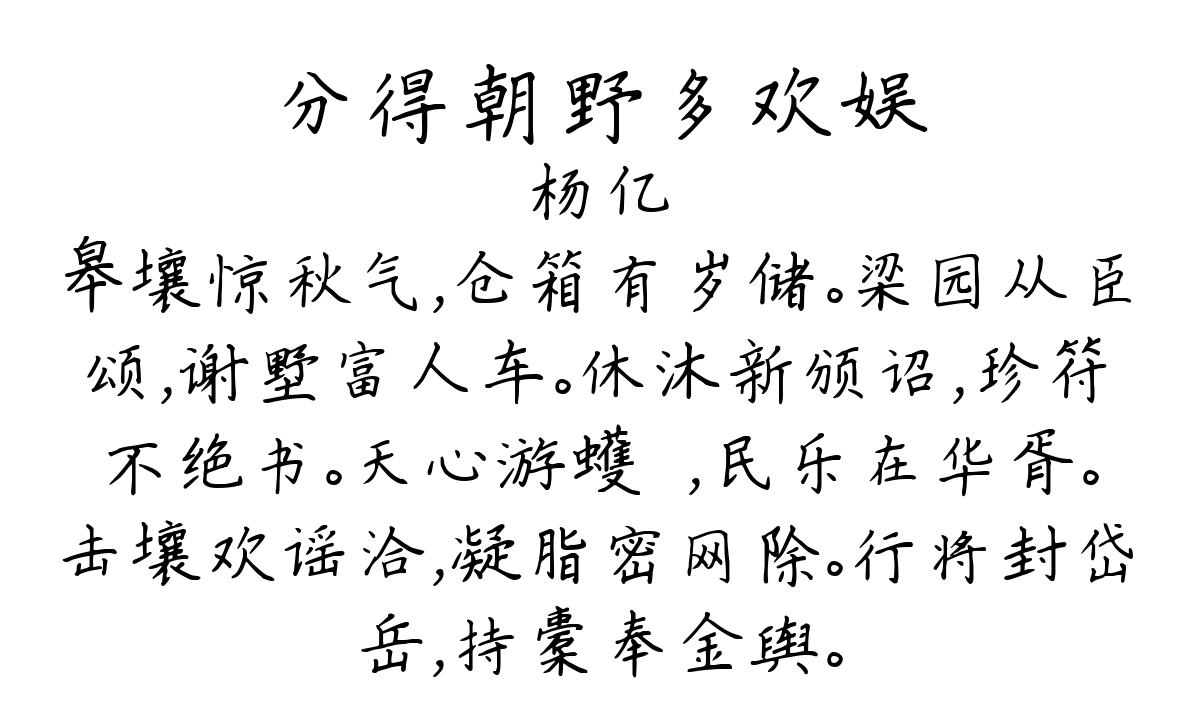 分得朝野多欢娱
杨亿
皋壤惊秋气,仓箱有岁储。梁园从臣
颂,谢墅富人车。休沐新颁诏,珍符
不绝书。天心游蠖 ,民乐在华胥。
击壤欢谣洽,凝脂密网除。行将封岱
岳,持橐奉金舆。